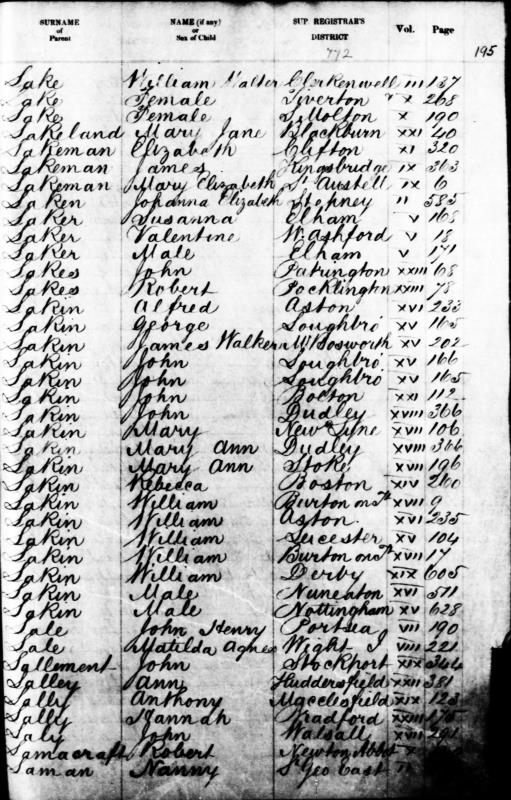 SURNAME of Parent NAME (if any) or Sex of Child SUP REGISTRAR'S DISTRICT Vol. Page
772 195
Lake William Walter Clerkenwell III 137
Lake Female Tiverton X 268
Lake Female S. Molton X 190
Lakeland Mary Jane Blackburn XXI 40
Lakeman Elizabeth Clifton XI 320
Lakeman James Kingsbridge IX 363
Lakeman Mary Elizabeth St Austell IX 6
Laken Johanna Elizabeth Stepney II 385
Laker Susanna Elham V 168
Laker Valentine W. Ashford V 18
Laker Male Elham V 171
Lakes John Patrington XXIII 68
Lakes Robert Pocklington XXIII 78
Lakin Alfred Aston XVI 233
Lakin George Loughbro' XV 165
Lakin James Walker M Bosworth XV 202
Lakin John Loughbro' XV 166
Lakin John Loughbro' XV 165
Lakin John Bolton XXI 112
Lakin John Dudley XVIII 366
Lakin Mary Newc Lyne XVII 106
Lakin Mary Ann Dudley XVIII 366
Lakin Mary Ann Stoke XVII 196
Lakin Rebecca Boston XIV 260
Lakin William Burton on T. XVII 9
Lakin William Aston XVI 235
Lakin William Leicester XV 104
Lakin William Burton on T. XVII 17
Lakin William Derby XIX 605
Lakin Male Nuneaton XVI 511
Lakin Male Nottingham XV 628
Lale John Henry Portsea VII 190
Lale Matilda Agnes Wight I VIII 221
Lallement John Stockport XIX 344
Lalley Ann Huddersfield XXII 381
Lally Anthony Macclesfield XIX 123
Lally Hannah Bradford XXIII 176
Laly John Walsall XVII 291
Lamacraft Robert Newton Abbot X
Laman Nanny St Geo East II